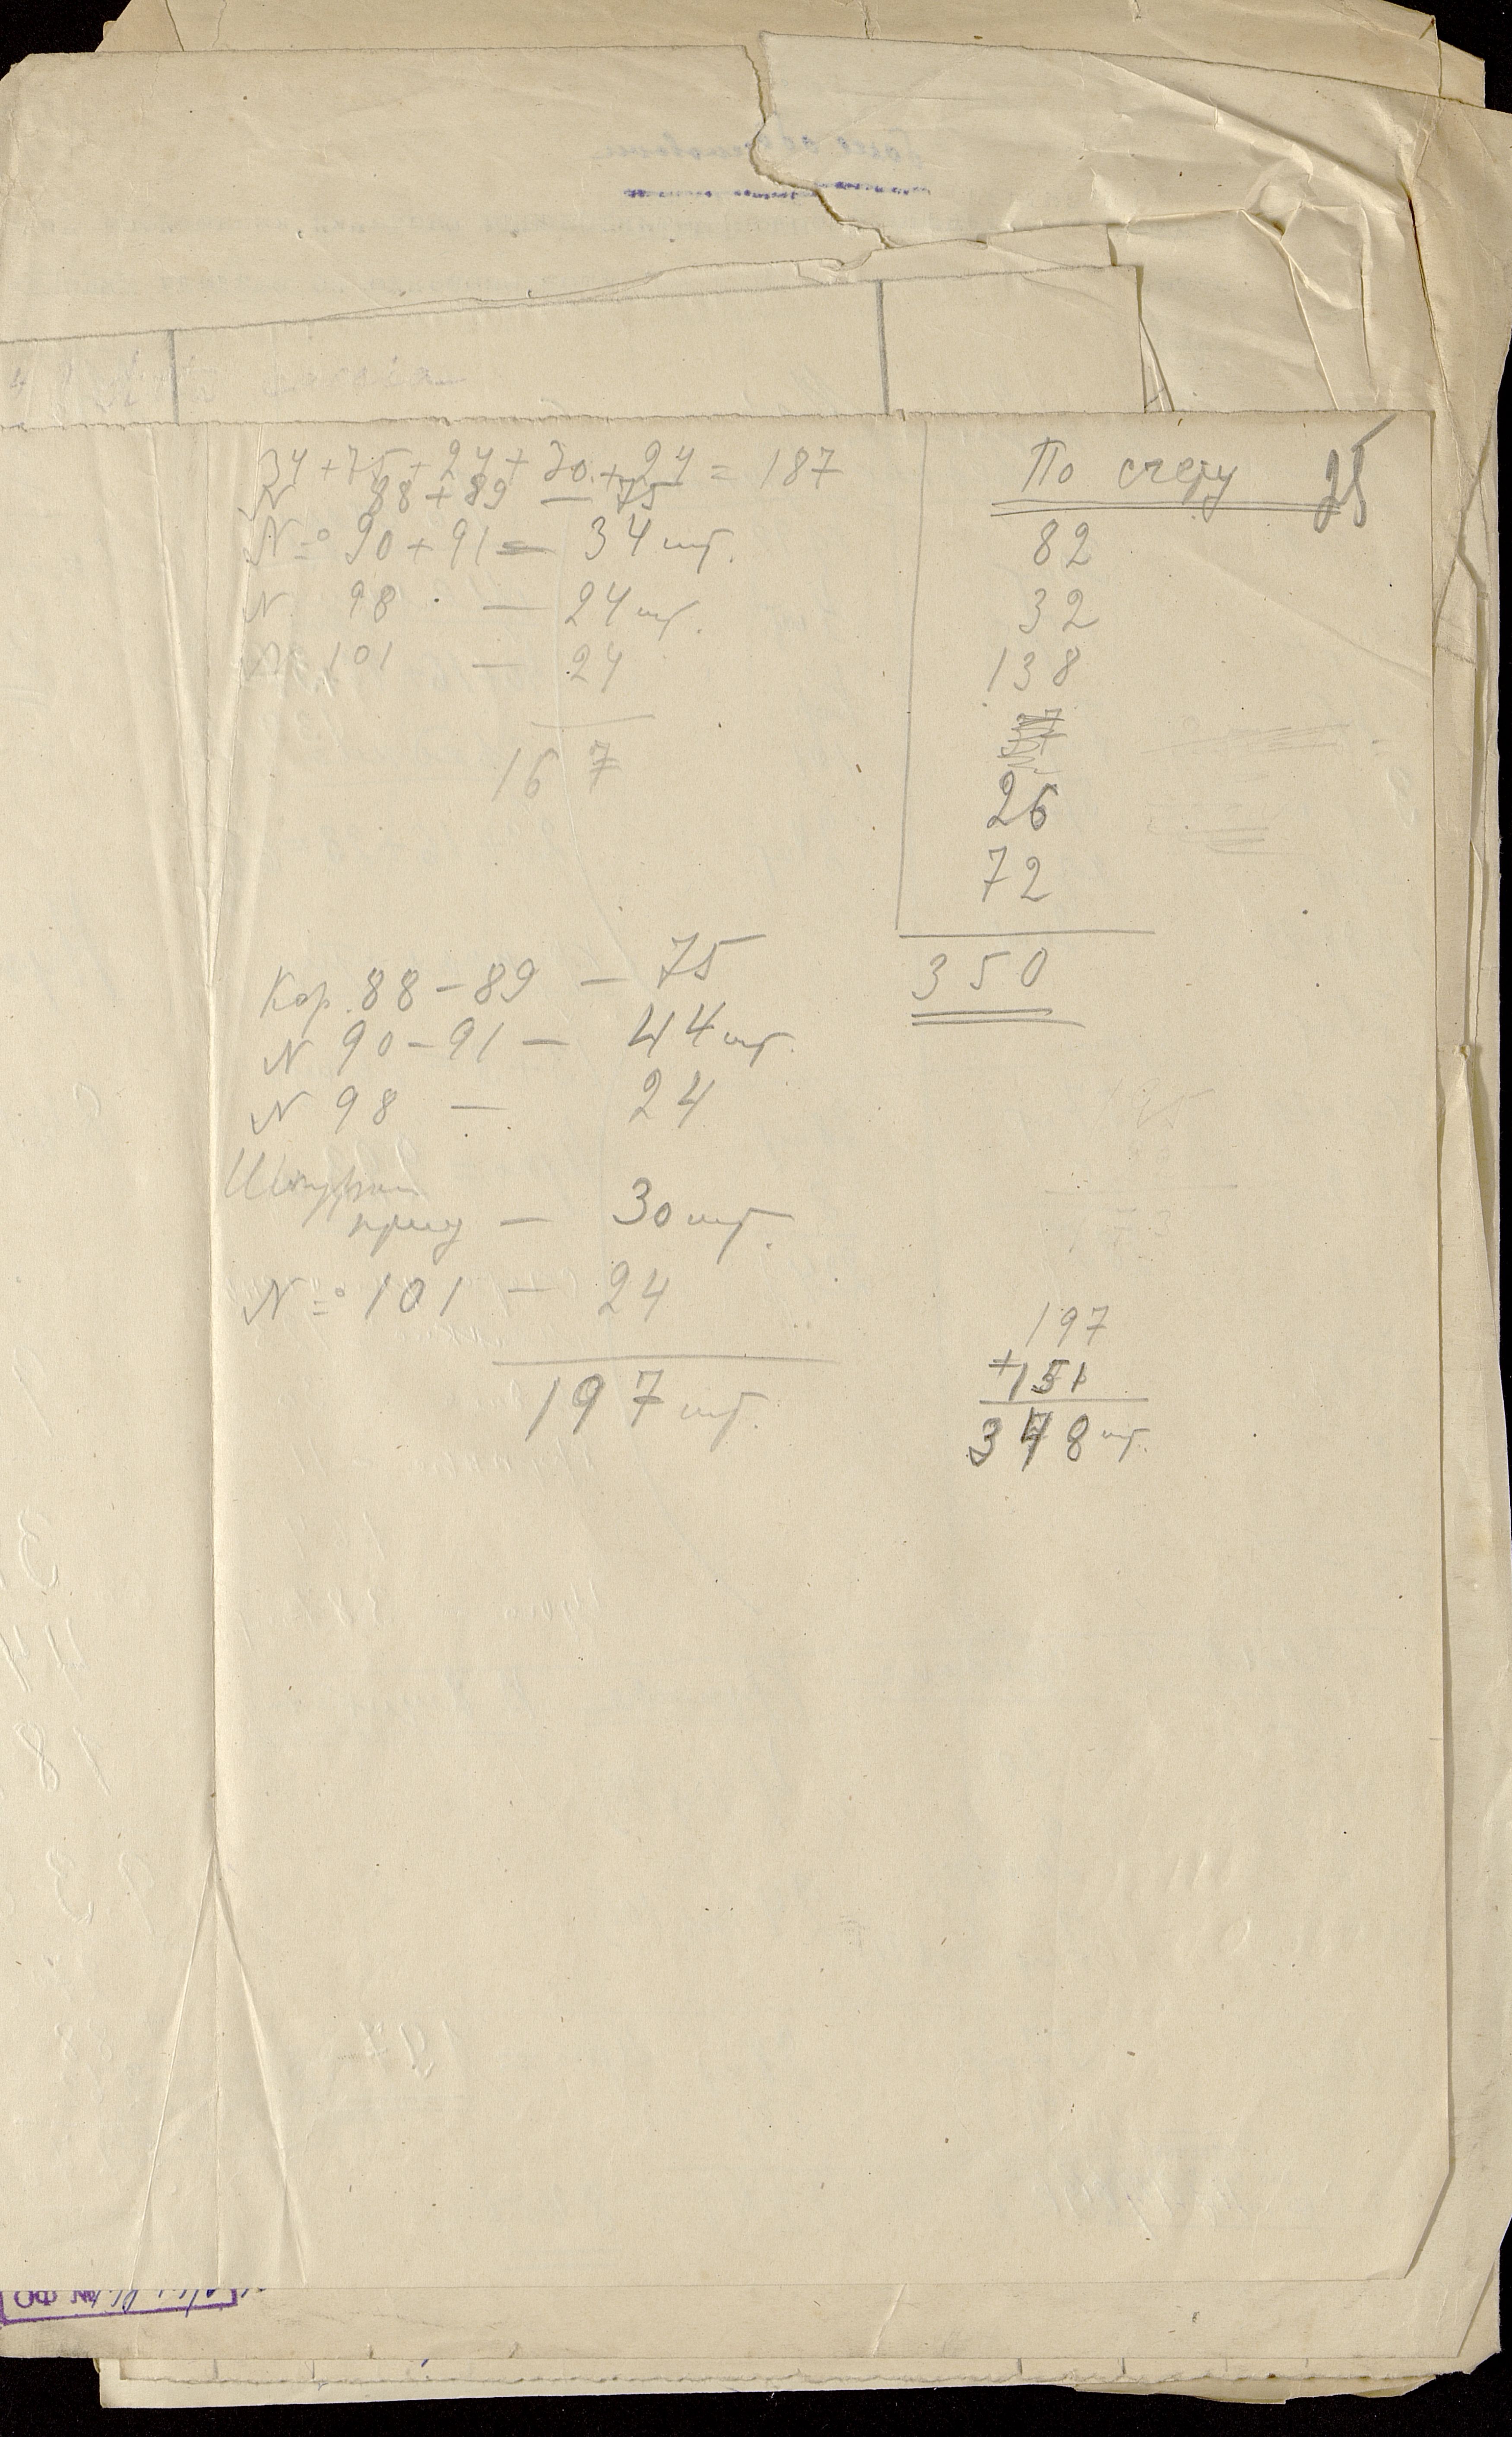 34 + 75 + 24 + 30 + 24 = 187
N 88 + 89 75
№ 90 + 91 = 34 шт.
N 98 — 24 шт.
N 101 — 24
167
По счету
25
82
32
138
37
26
72
350
Кор. 88 – 89 — 75
N 90 – 91 — 44 шт.
N 98 — 24
— 30 шт.
№ 101 — 24
197 шт.
197
+ 151
348 шт.
№ ФО